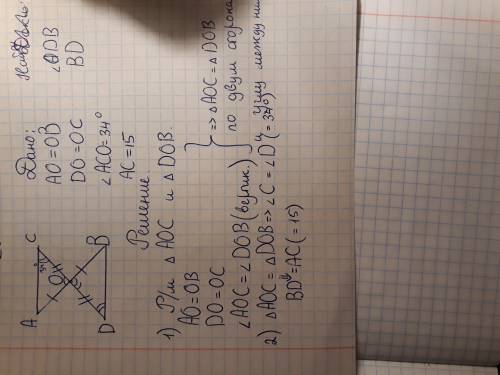 A C
O
D B
Дано:
AO=OB
DO=OC
∠ACO=34°
AC=15
Найти:
∠ODB
BD
Решение
1) Р/м △AOC и △DOB.
AO=OB
DO=OC
∠AOC=∠DOB(вертик.)
=> △AOC=△DOB
по двум сторонам
и углу между ним
2) △AOC=△DOB=>∠C=∠D(=34°)
BD=AC(=15)